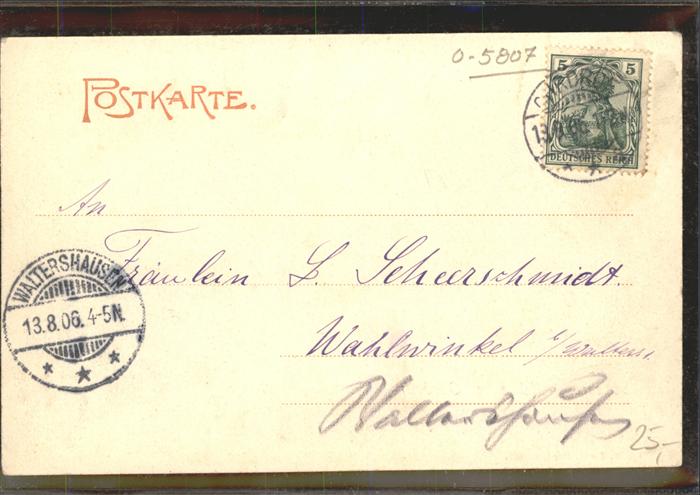 0-5807
POSTKARTE.
5 5
DEUTSCHES REICH
13.8.06.
An
Fräulein L. Scheerschmidt.
WALTERSHAUSEN
13.8.06. 4-5N.
Wahlwinkel b/Walters.
Waltershausen
25,-